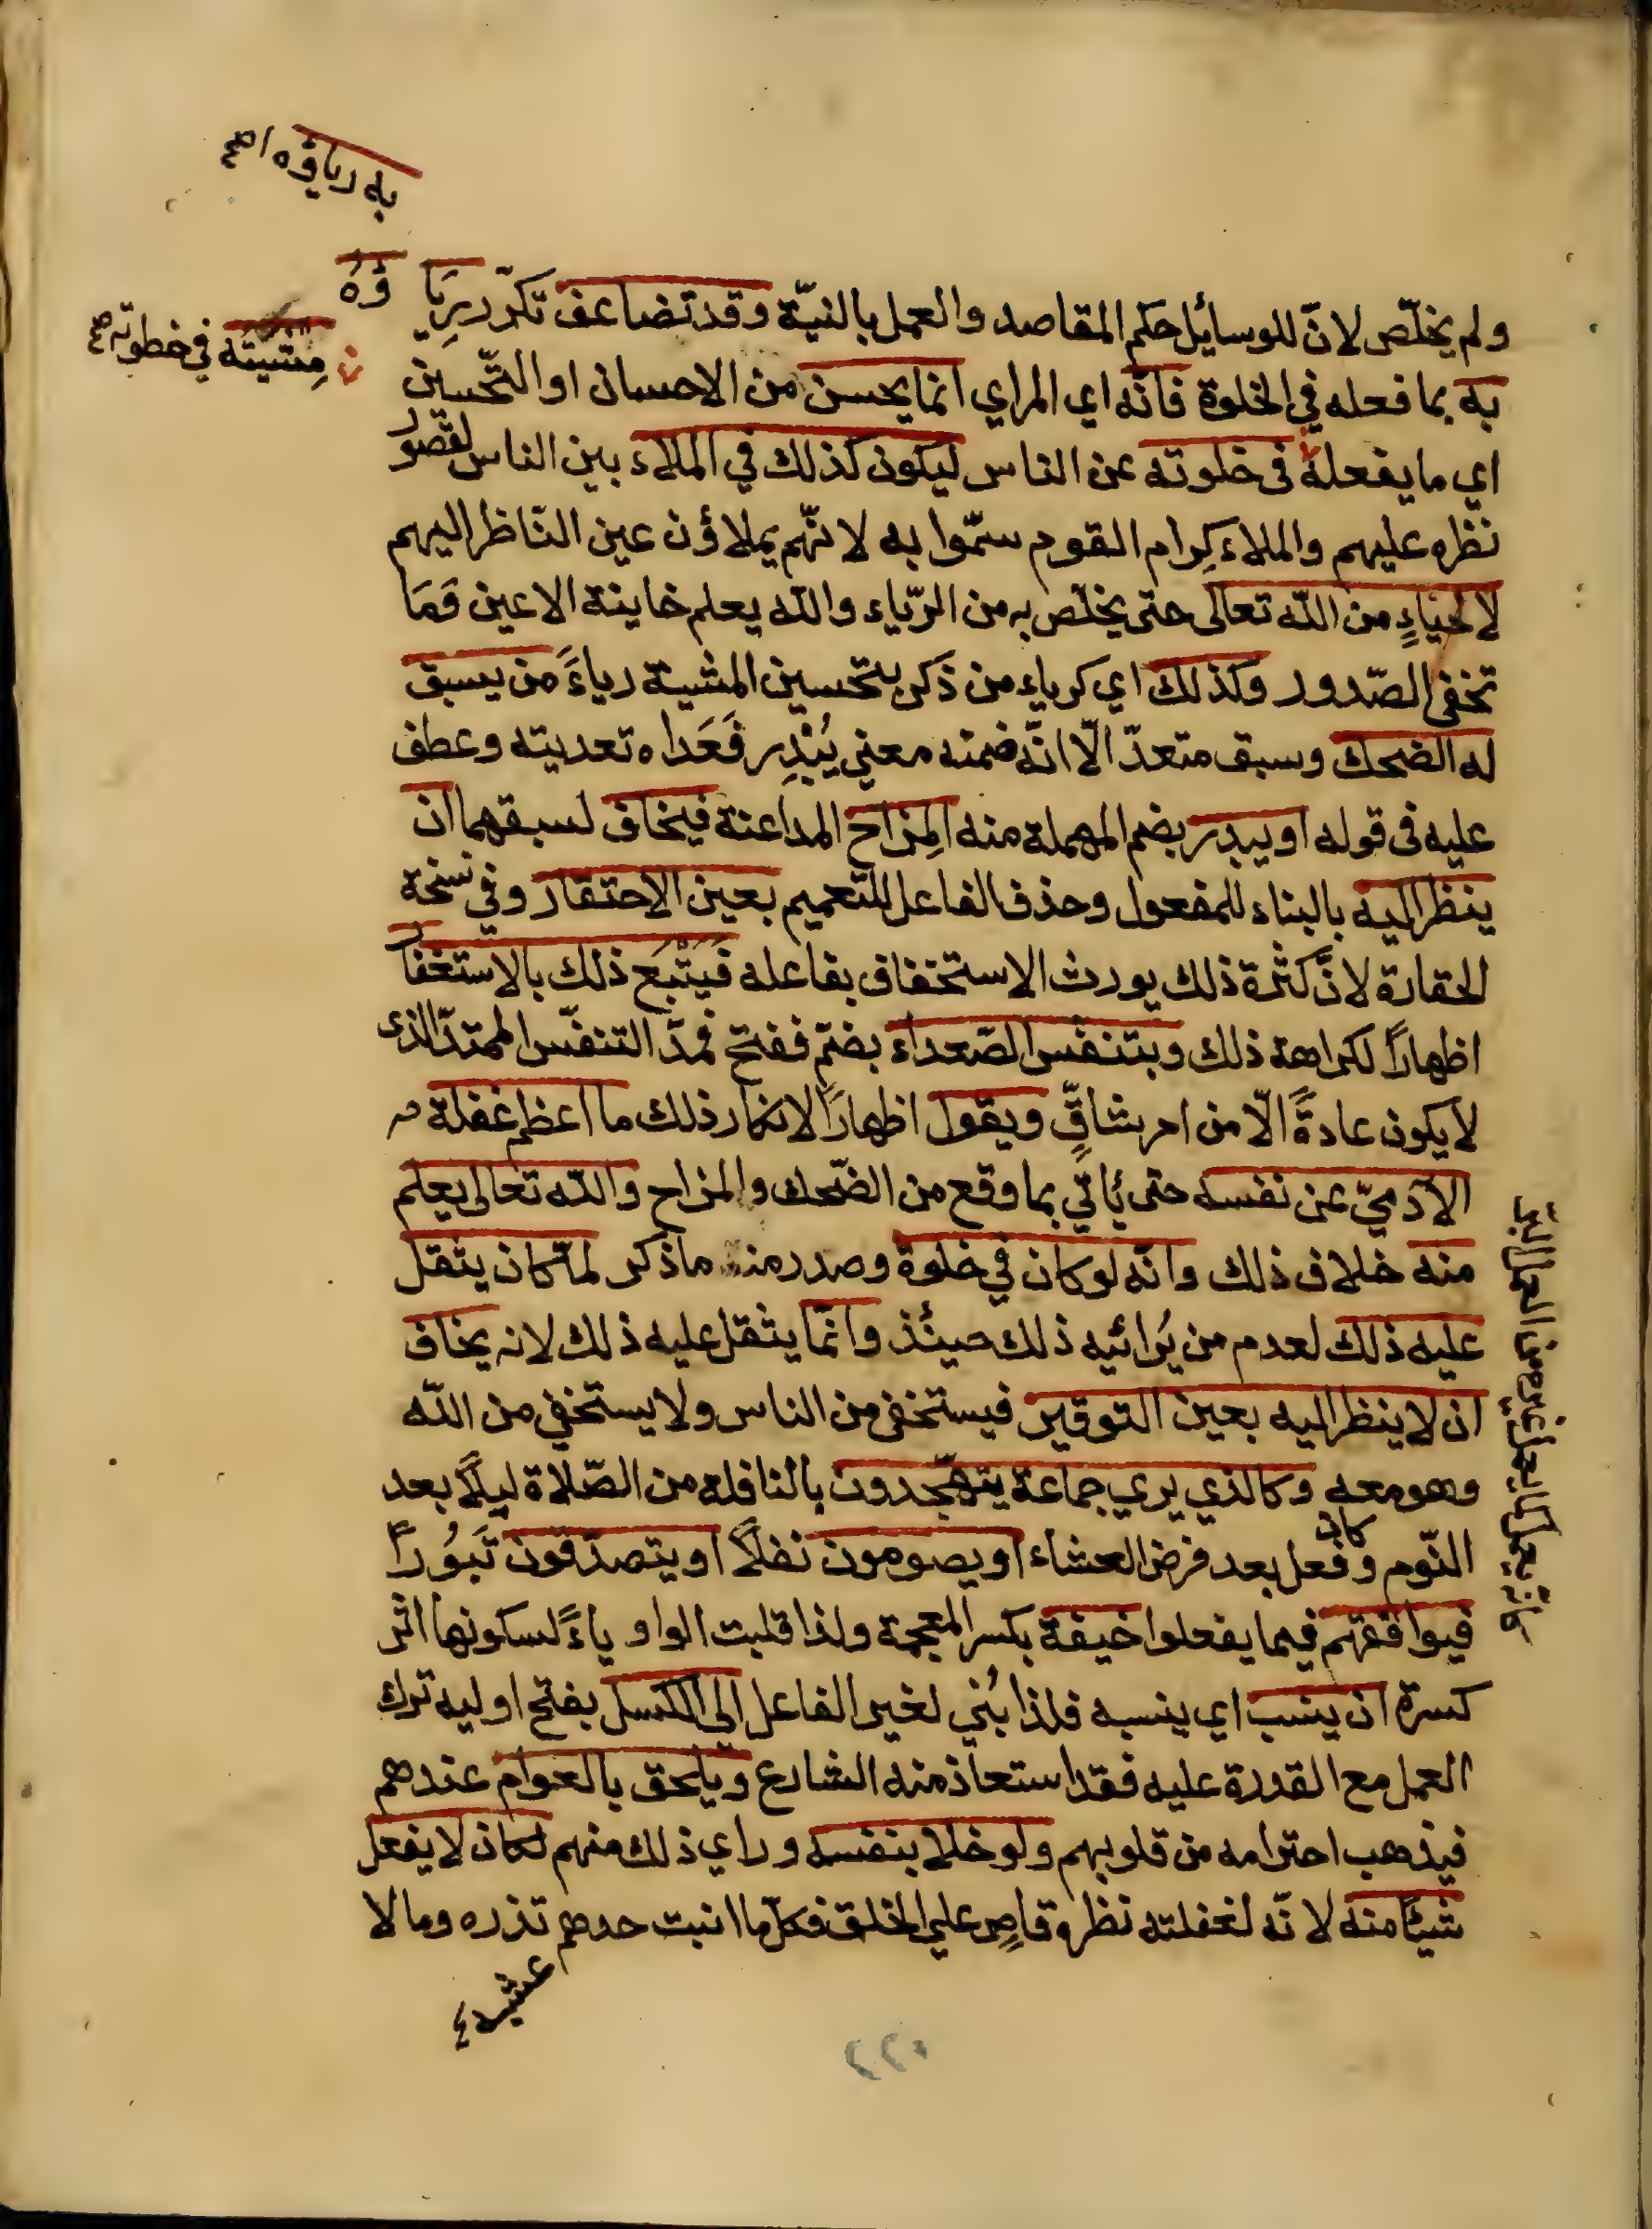 به رياؤه اصح
ولم يخلّص لانّ للوسائل حكم المقاصد والعمل بالنيّة وقد تضاعف تكرّر رِيَاؤهُ
مِشيته في خطوته صح
به بما فعله في الخلوة فانّه اي المراي انما يحسن من الاحسان او التّحسين
اي ما يفعله في خلوته عن الناس ليكون كذلك في الملاء بين الناس لقصور
نظره عليهم والملاء كِرام القوم سمّوا به لانّهم يملاؤن عين النّاظر اليهم
لا لحيَاءٍ من اللّه تعالى حتى يخلّص به من الرّياء واللّه يعلم خاينة الاعين وَمَا
تخفى الصّدور وكذلك اي كرياء من ذكر بتحسين المشية رياءً من يسبق
له الضحك وسبق متعدّ الّا انّه ضمنه معنى يُبْدِر فَعَداه تعديته وعطف
عليه في قوله او يبدر بضم المهملة منه المِزاح المداعنة فيخاف لسبقهما ان
ينظر اليه بالبناء للمفعول وحذف الفاعل للتعميم بعين الاحتقار وفي نسخة
الحقارة لانّ كثرة ذلك يورث الاستخفاف بفاعله فَيَتْبَع ذلك بالاستغفار
اظهارًا لكراهة ذلك وبتنفس الصّعداء بضمّ ففتح فمدّ التنفّس الممتدّ الذى
لا يكون عادةً الّا من امر شاقٍّ ويقول اظهارًا لانكار ذلك ما اعظم غفلة
الآدميّ عن نفسه حتى يأتي بما وقع من الضّحك والمزاح واللّه تعالى يعلم
منه خلاف ذلك وانّه لو كان في خلوة وصدر منه ما ذكر لما كان يثقل
عليه ذلك لعدم من يُرائيه ذلك حينئذ وانّما يثقل عليه ذلك لانه يخاف
ان لا ينظر اليه بعين التوقير فيستخفى من الناس ولا يستخفي من اللّه
وهو معه وكالذي يري جماعة يتهجّدون بالنافله من الصّلاة ليلًا بعد
النّوم وكان فعل بعد فرض العشاء او يصومون نفلًا او يتصدّقون تَبَرُّرًا
فيوافقهم فيما يفعلوا خيفة بكسر المعجمة ولذا قلبت الواو ياءً لسكونها اثر
كسرة ان ينسب اي ينسبه فلذا بُني لغير الفاعل الي الكسل بفتح اوليه ترك
العمل مع القدرة عليه فقد استعاذ منه الشارع ويلحق بالعوام عندهم
فيذهب احترامه من قلوبهم ولو خلا بنفسه وراي ذلك منهم لكان لا يفعل
شيئًا منه لانّه لغفلته نظره قاصِر علي الخلق فكلّ ما اثبت حدهم تذره وما لا